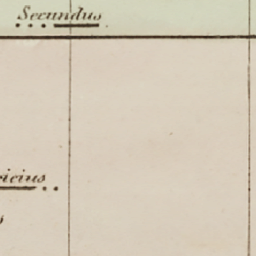 Secundus
icius
s